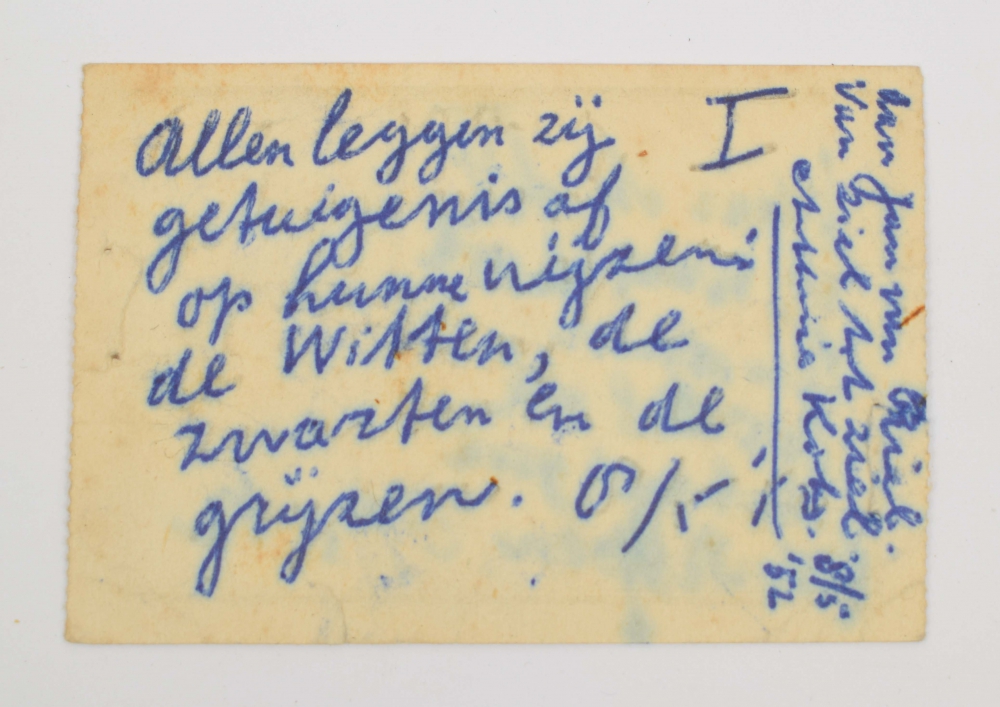 I
Allen leggen zij
getuigenis af
op hunne wijzen:
de Witten, de
zwarten en de
grijzen.
Aan Jan van Criel.
Van ziel tot ziel.
Kobs. 8/5
'52